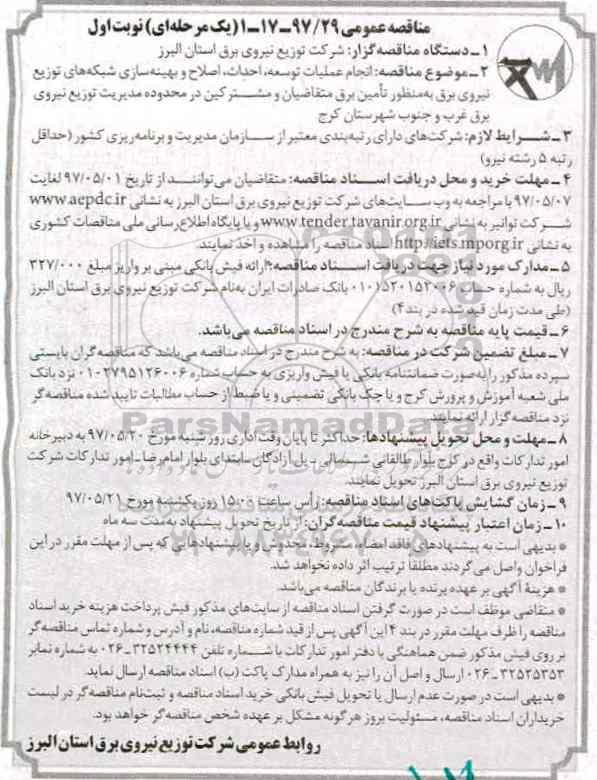 مناقصه عمومی ۹۷/۲۹-۱۷-۱ (یک مرحله‌ای) نوبت اول
۱- دستگاه مناقصه‌گزار: شرکت توزیع نیروی برق استان البرز
۲- موضوع مناقصه: انجام عملیات توسعه، احداث، اصلاح و بهینه‌سازی شبکه‌های توزیع
نیروی برق به‌منظور تأمین برق متقاضیان و مشترکین در محدوده مدیریت توزیع نیروی
برق غرب و جنوب شهرستان کرج
۳- شرایط لازم: شرکت‌های دارای رتبه‌بندی معتبر از سازمان مدیریت و برنامه‌ریزی کشور (حداقل
رتبه ۵ رشته نیرو)
۴- مهلت خرید و محل دریافت اسناد مناقصه: متقاضیان می‌توانند از تاریخ ۹۷/۰۵/۰۱ لغایت
۹۷/۰۵/۰۷ با مراجعه به وب سایت‌های شرکت توزیع نیروی برق استان البرز به نشانی www.aepdc.ir
شرکت توانیر به نشانی www.tender.tavanir.org.ir و یا پایگاه اطلاع‌رسانی ملی مناقصات کشوری
به نشانی http://iets.mporg.ir اسناد مناقصه را مشاهده و اخذ نمایند.
۵- مدارک مورد نیاز جهت دریافت اسناد مناقصه: ارائه فیش بانکی مبنی بر واریز مبلغ ۳۲۷/۰۰۰
ریال به شماره حساب ۰۱۰۱۵۲۰۱۵۲۰۰۶ بانک صادرات ایران به‌نام شرکت توزیع نیروی برق استان البرز
(طی مدت زمان قید شده در بند ۴)
۶- قیمت پایه مناقصه به شرح مندرج در اسناد مناقصه می‌باشد.
۷- مبلغ تضمین شرکت در مناقصه: به شرح مندرج در اسناد مناقصه می‌باشد که مناقصه‌گران بایستی
سپرده مذکور را به‌صورت ضمانتنامه بانکی یا فیش واریزی به حساب شماره ۰۱۰۲۷۹۵۱۲۶۰۰۶ نزد بانک
ملی شعبه آموزش و پرورش کرج و یا چک بانکی تضمینی و یا ضبط از حساب مطالبات تایید شده مناقصه‌گر
نزد مناقصه گزار ارائه نمایند.
۸- مهلت و محل تحویل پیشنهادها: حداکثر تا پایان وقت اداری روز شنبه مورخ ۹۷/۰۵/۲۰ به دبیرخانه
امور تدارکات واقع در کرج بلوار طالقانی شمالی - پل آزادگان - ابتدای بلوار امام رضا - امور تدارکات شرکت
توزیع نیروی برق استان البرز تحویل نمایند.
۹- زمان گشایش پاکت‌های اسناد مناقصه: رأس ساعت ۱۵:۰۰ روز یکشنبه مورخ ۹۷/۰۵/۲۱
۱۰- زمان اعتبار پیشنهاد قیمت مناقصه‌گران: از تاریخ تحویل پیشنهاد به‌مدت سه ماه
* بدیهی است به پیشنهادهای فاقد امضاء، مشروط، مخدوش و یا پیشنهادهایی که پس از مهلت مقرر در این
فراخوان واصل می‌گردند مطلقا ترتیب اثر داده نخواهد شد.
* هزینه آگهی بر عهده برنده یا برندگان مناقصه می‌باشد.
* متقاضی موظف است در صورت گرفتن اسناد مناقصه از سایت‌های مذکور فیش پرداخت هزینه خرید اسناد
مناقصه را ظرف مهلت مقرر در بند ۴ این آگهی پس از قید شماره مناقصه، نام و آدرس و شماره تماس مناقصه‌گر
بر روی فیش مذکور ضمن هماهنگی با دفتر امور تدارکات با شماره تلفن ۳۲۵۲۴۴۴۴-۰۲۶ به شماره نمابر
۳۲۵۲۵۳۵۳-۰۲۶ ارسال و اصل آن را نیز به همراه مدارک پاکت (ب) اسناد مناقصه ارسال نماید.
* بدیهی است در صورت عدم ارسال یا تحویل فیش بانکی خرید اسناد مناقصه و ثبت‌نام مناقصه‌گر در لیست
خریداران اسناد مناقصه، مسئولیت بروز هرگونه مشکل بر عهده شخص مناقصه‌گر خواهد بود.
روابط عمومی شرکت توزیع نیروی برق استان البرز
ParsNamadData